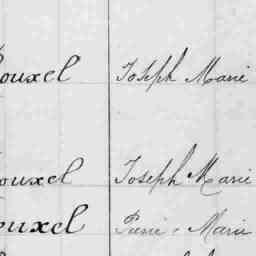 Rouxel Joseph Marie
Rouxel Joseph Marie
Rouxel Pierre Marie